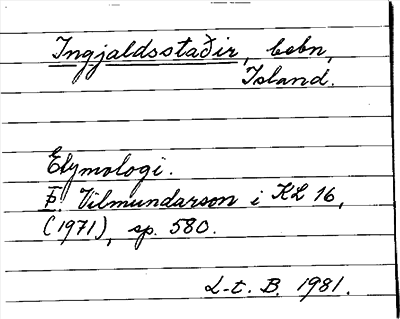 Ingjaldsstaðir, bebn,
Island.
Etymologi.
Þ. Vilmundarson i KL 16,
(1971), sp. 580.
L-t. B. 1981.